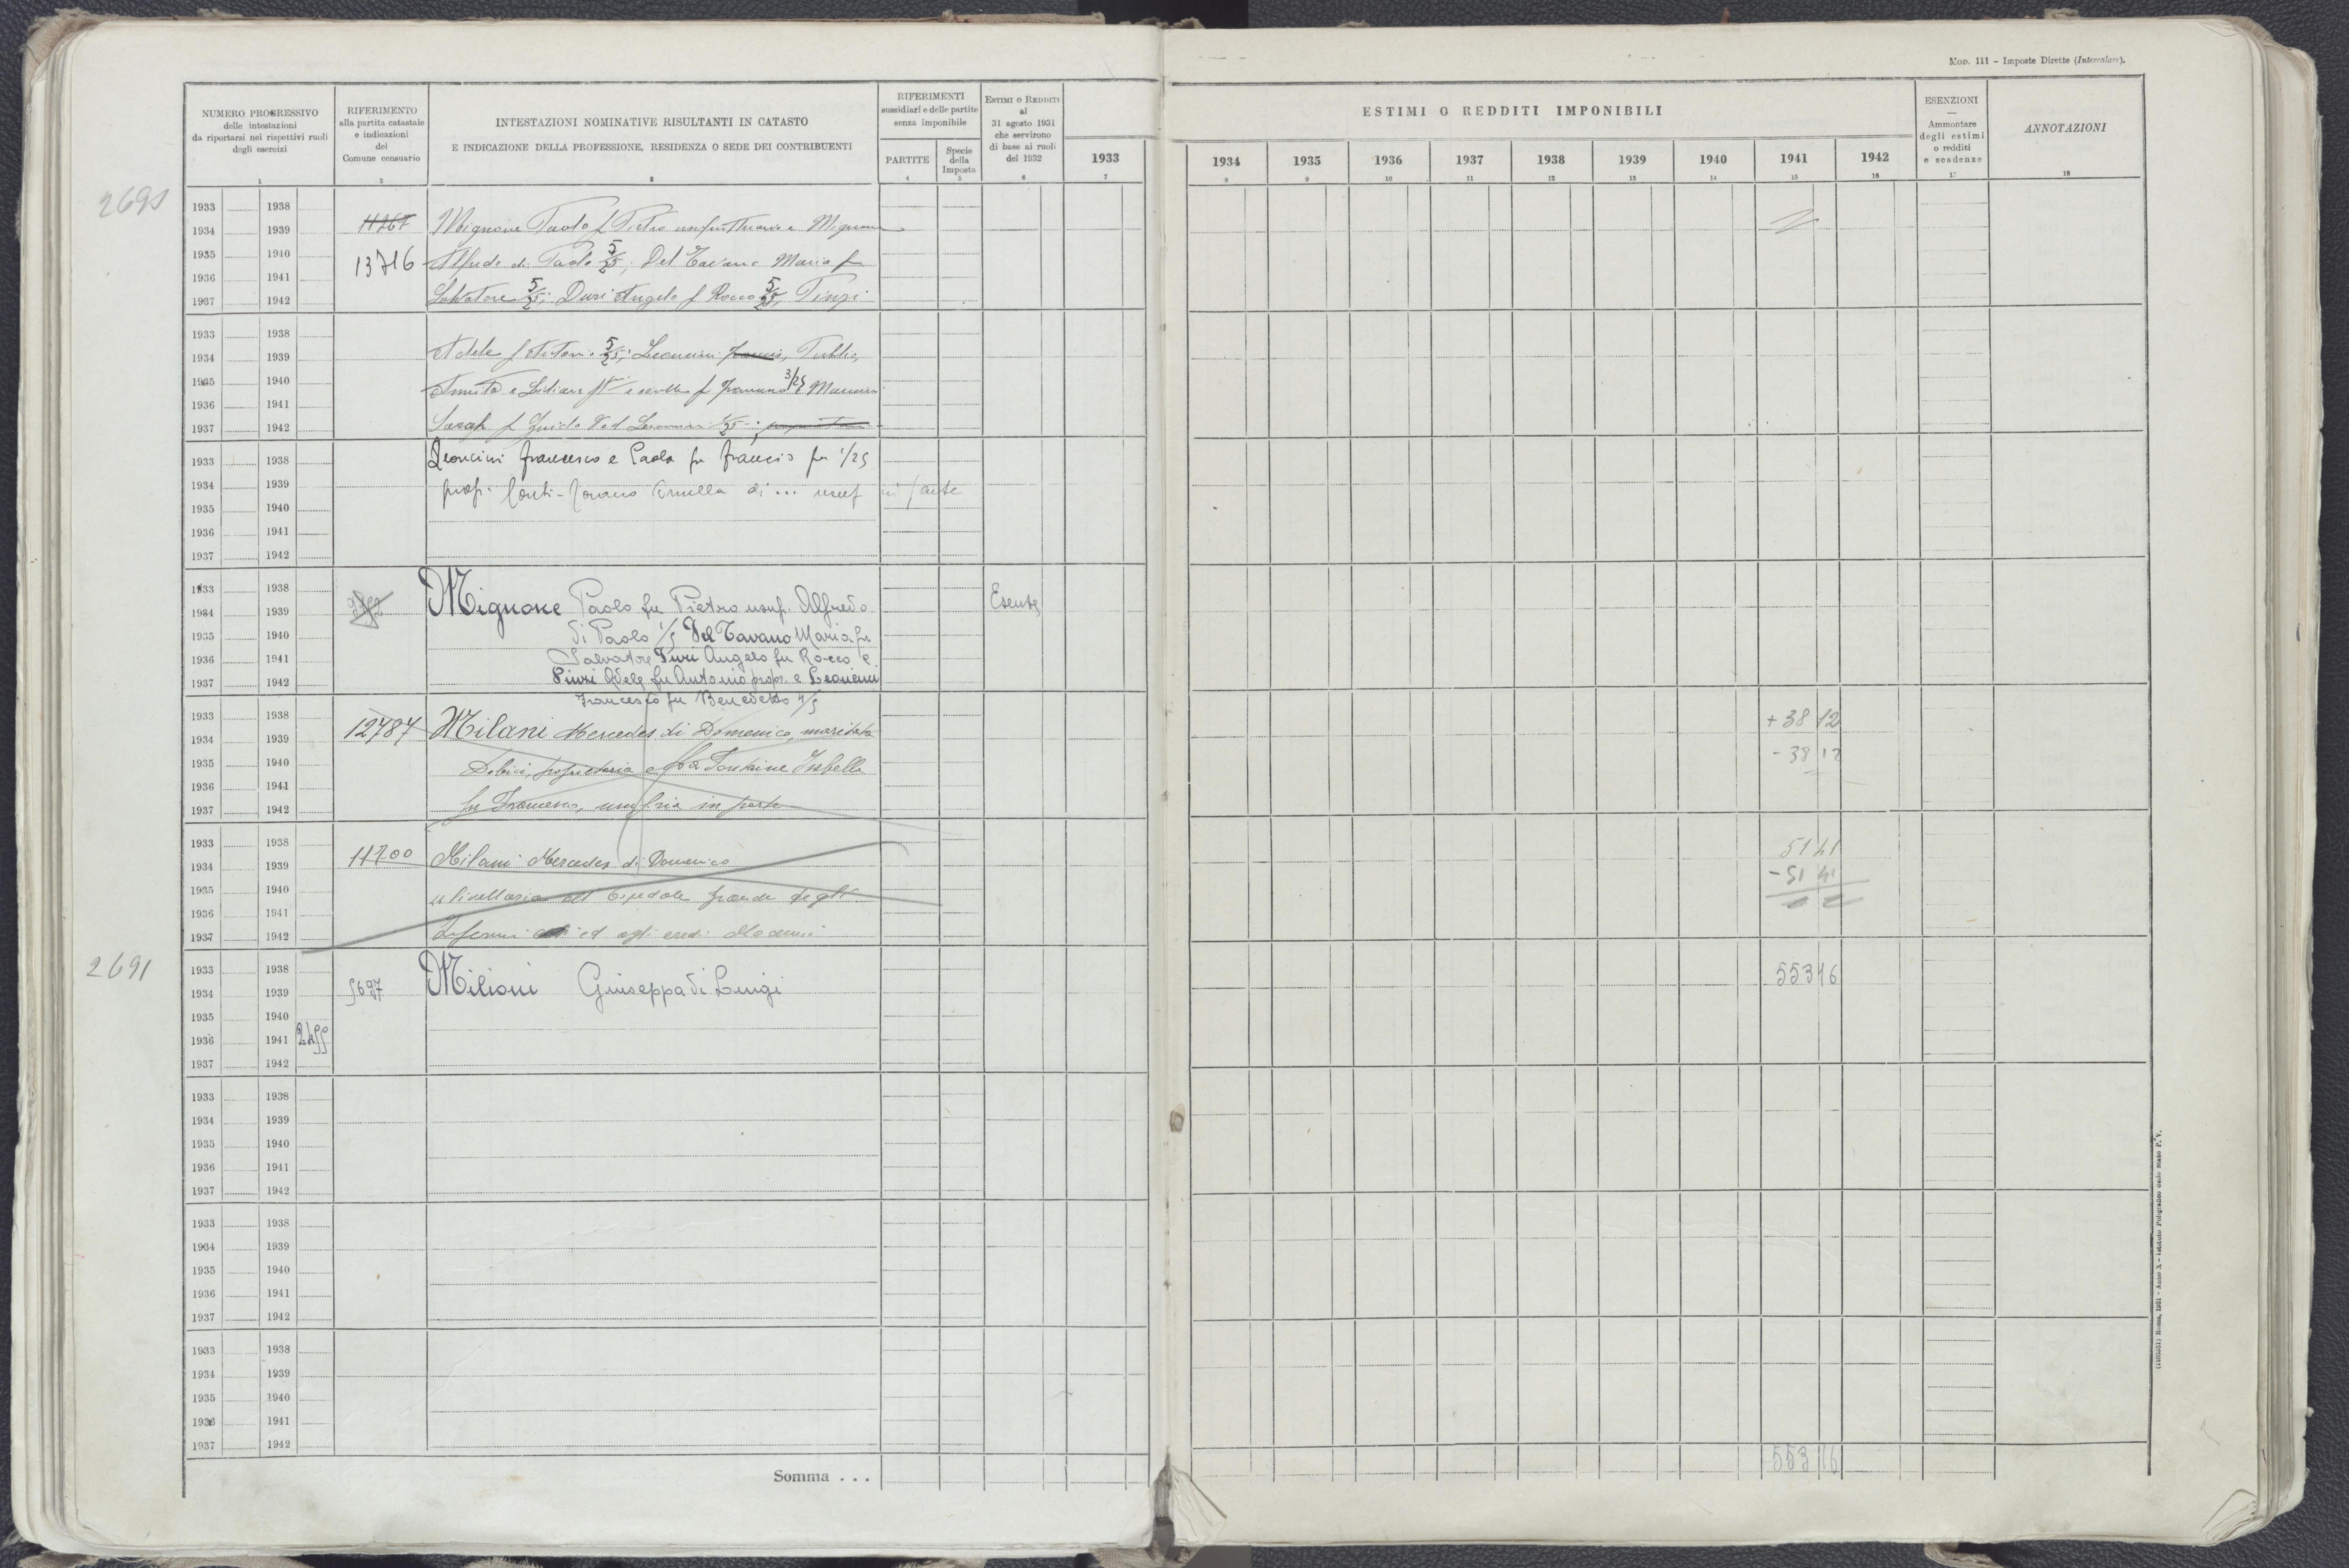 Mod. 111 – Imposte Dirette (Intercalare).
NUMERO PROGRESSIVO
delle intestazioni
da riportarsi nei rispettivi ruoli
degli esercizi
1
RIFERIMENTO
alla partita catastale
e indicazioni
del
Comune censuario
2
INTESTAZIONI NOMINATIVE RISULTANTI IN CATASTO
E INDICAZIONE DELLA PROFESSIONE, RESIDENZA O SEDE DEI CONTRIBUENTI
3
RIFERIMENTI
sussidiari e delle partite
senza imponibile
PARTITE
4
Specie
della
Imposta
5
Estimi o Redditi
al
31 agosto 1931
che servirono
di base ai ruoli
del 1932
6
1933
7
ESTIMI O REDDITI IMPONIBILI
1934 1935 1936 1937 1938 1939 1940 1941 1942
8 9 10 11 12 13 14 15 16
ESENZIONI
—
Ammontare
degli estimi
o redditi
e scadenze
17
ANNOTAZIONI
18
1933 1938
1934 1939 11267 Mignone Paolo f Pietro usufruttuario e Mignone
1935 1940 13716 Alfredo di Paolo 5/25; Del Tavano Maria f
1936 1941
1937 1942 Salvatore 5/25; Duri Angelo f Rocco 5/25, Pinzi
1933 1938
1934 1939 Adele f Antonio 5/25; Leoncini Publio,
1935 1940 3/25
1936 1941
1937 1942 f Guido Ved Leoncini 1/25
1933 1938 Leoncini Francesco e Paola fu Francis per 1/25
1934 1939 di ... usuf in parte
1935 1940
1936 1941
1937 1942
1933 1938
1934 1939 Mignone Paolo fu Pietro usuf. Alfredo Esente
1935 1940 di Paolo 1/5 Del Tavano Maria fu
1936 1941 Salvatore Duri Angelo fu Rocco e
1937 1942 Pinzi Adele fu Antonio propr. e Leoncini
Francesco fu Benedetto 4/5
1933 1938 + 38 12
1934 1939 12787 Milani Mercedes di Domenico, maritata
1935 1940 Dobici, proprietaria e La Fontaine Isabella - 38 12
1936 1941
1937 1942 fu Francesco, usuf.ria in parte
1933 1938
1934 1939 11700 Milani Mercedes di Domenico 51 41
1935 1940 utilivellaria all'Ospedale grande degli - 51 41
1936 1941
1937 1942 Infermi ed agli eredi
2691
1933 1938 553 16
1934 1939 5697 Milioni Giuseppa di Luigi
1935 1940
1936 1941
1937 1942
1933 1938
1934 1939
1935 1940
1936 1941
1937 1942
1933 1938
1934 1939
1935 1940
1936 1941
1937 1942
1933 1938
1934 1939
1935 1940
1936 1941
1937 1942
Somma . . . 553 16